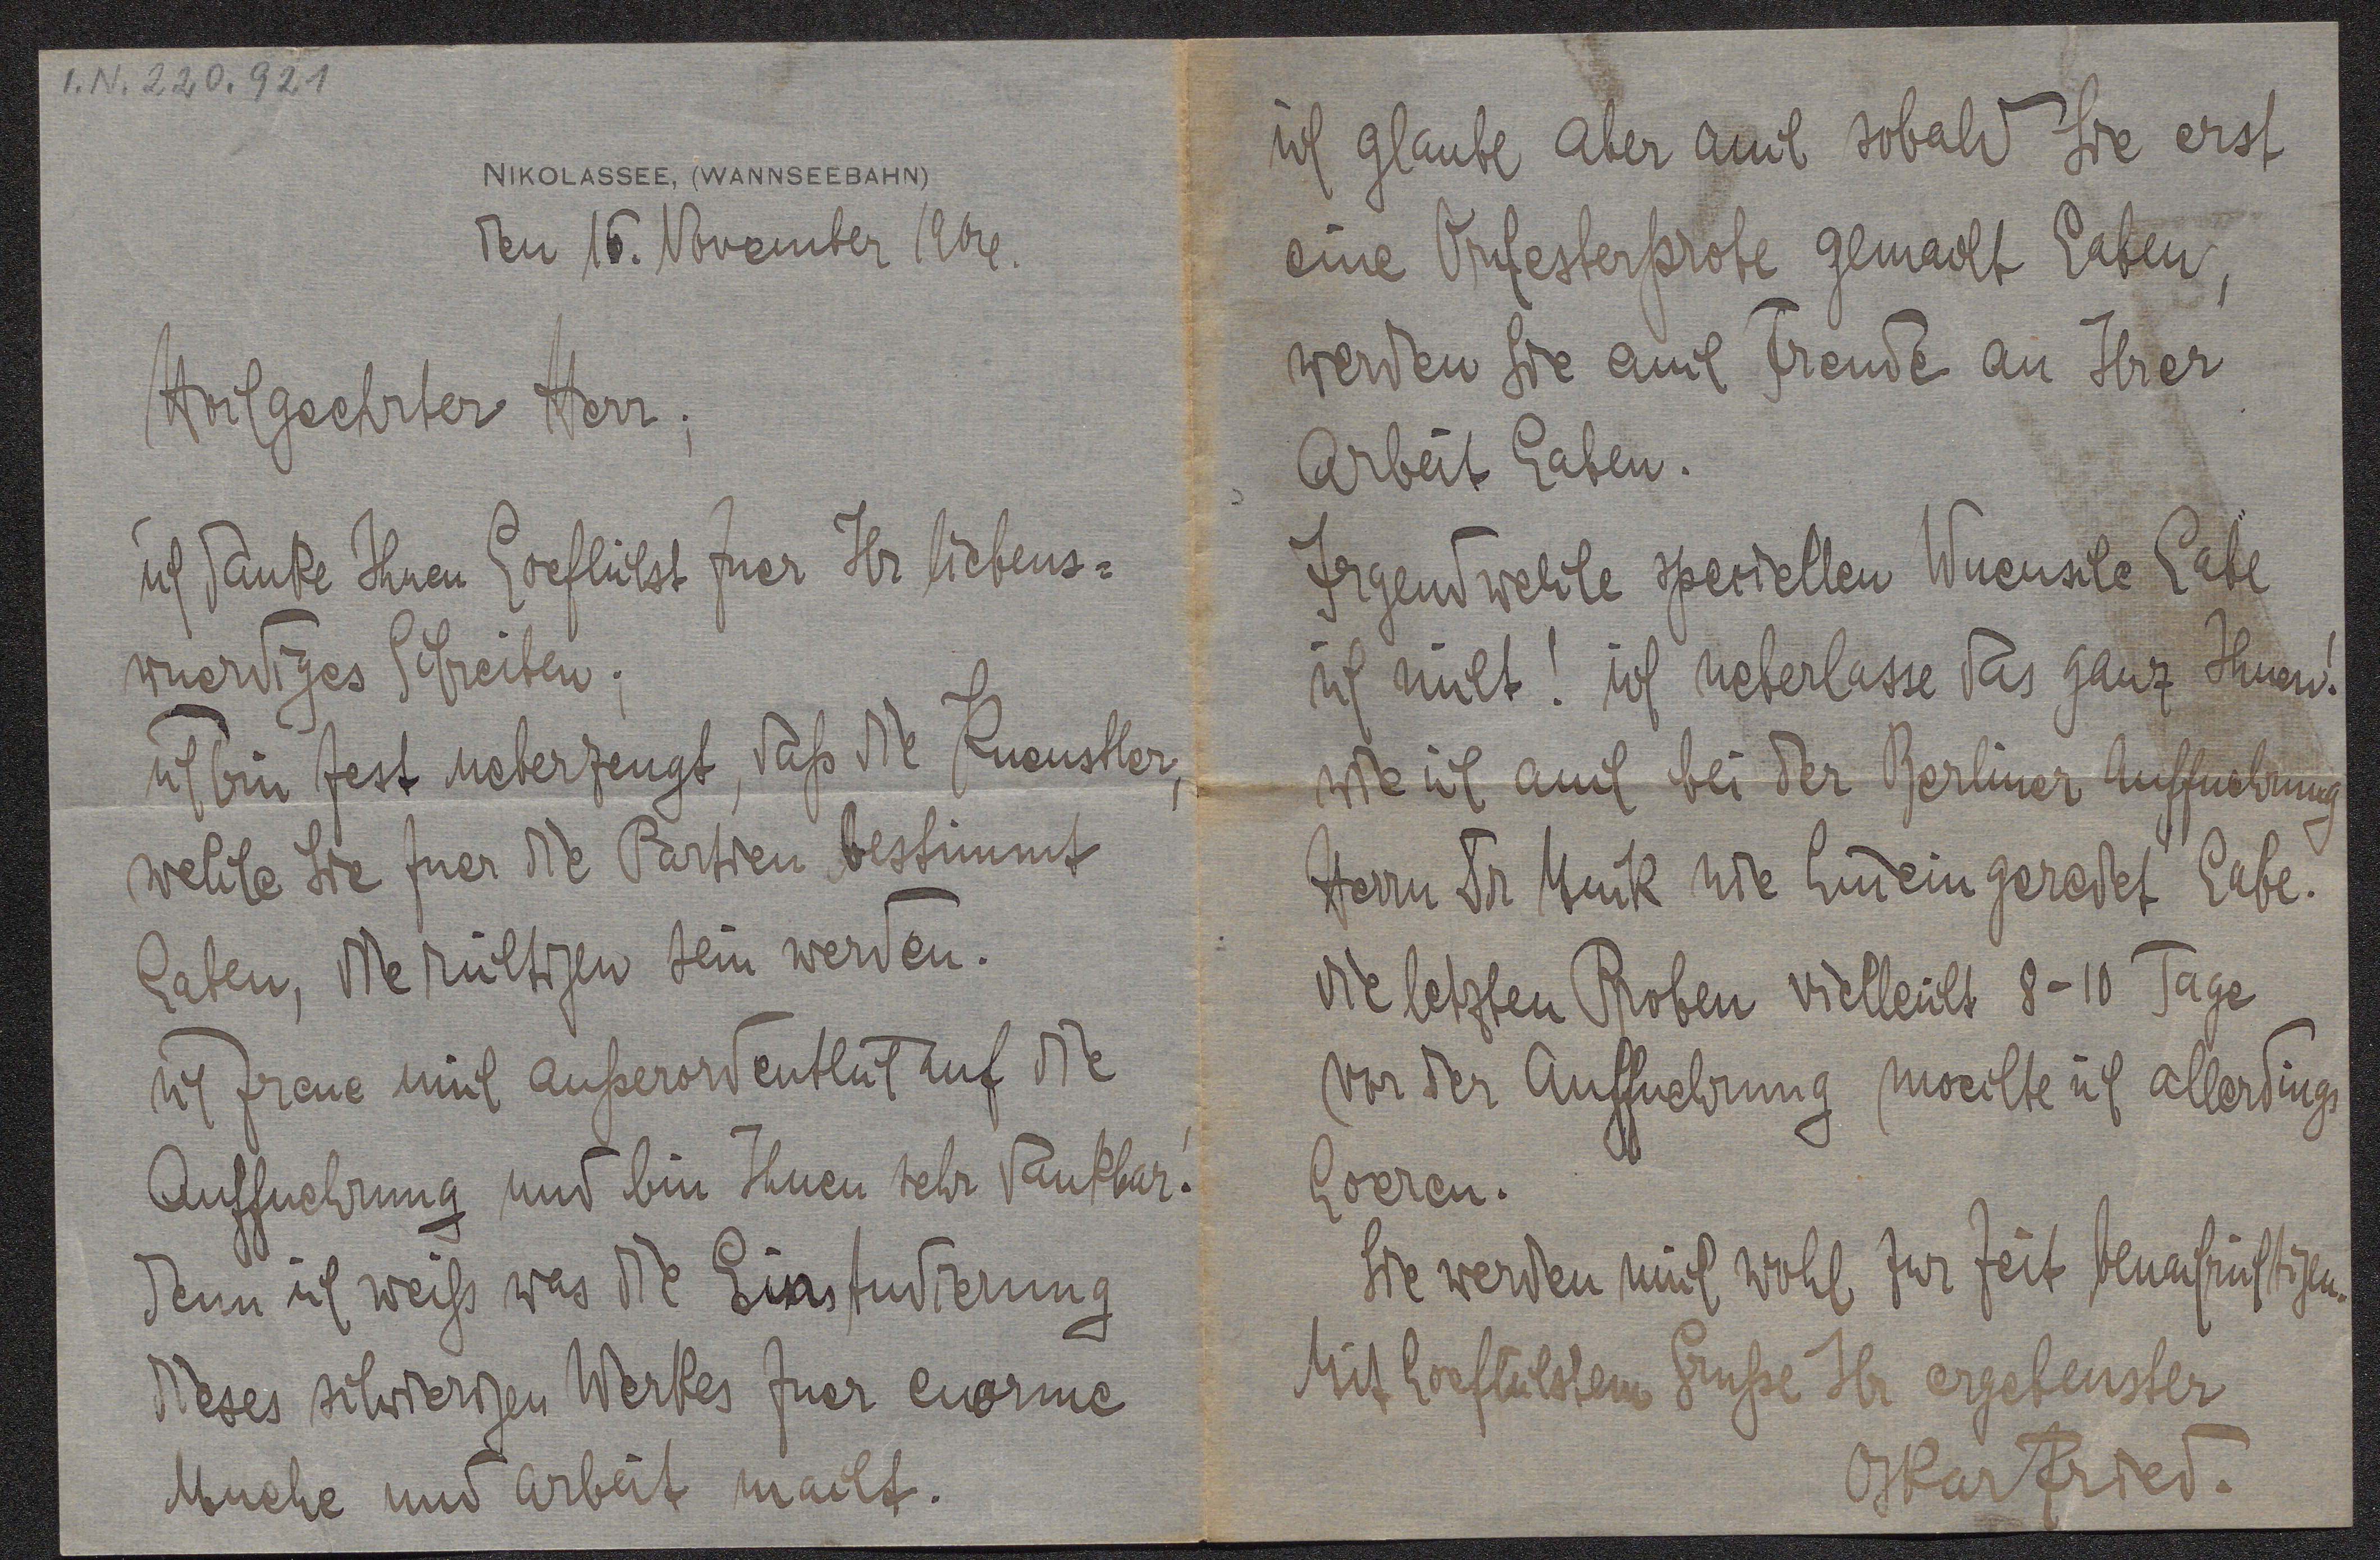 I.N. 220.921
NIKOLASSEE, (WANNSEEBAHN)
den 16. November
Hochgeehrter Herr;
ich danke Ihnen hoeflichst fuer Ihr liebens=
wuerdiges Schreiben;
ich bin fest ueberzeugt, daß die Kuenstler,
welche Sie fuer die Partien bestimmt
haben, die richtigen sein werden.
ich freue mich außerordentlich auf die
Auffuehrung und bin Ihnen sehr dankbar!
denn ich weiß was die Einstudierung
dieses schwierigen Werkes fuer enorme
Muehe und Arbeit macht.
ich glaube aber auch sobald Sie erst
eine Orchesterprobe gemacht haben,
werden Sie auch Freude an Ihrer
Arbeit haben.
Irgendwelche speciellen Wuensche habe
ich nicht! ich ueberlasse das ganz Ihnen!
wie ich auch bei der Berliner Auffuehrung
Herrn Dr Muck nie hineingeredet habe.
die letzten Proben vielleicht 8-10 Tage
vor der Auffuehrung moechte ich allerdings
hoeren.
Sie werden mich wohl zur Zeit benachrichtigen.
Mit hoeflichstem Gruße Ihr ergebenster
Oskar Fried.